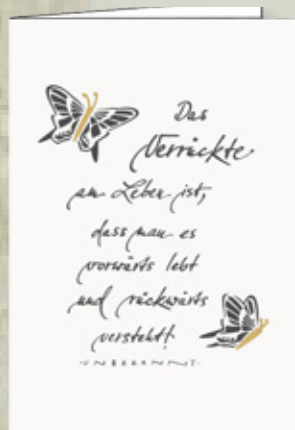 Das
Verrückte
am Leben ist,
dass man es
vorwärts lebt
und rückwärts
versteht!
·UNBEKANNT·